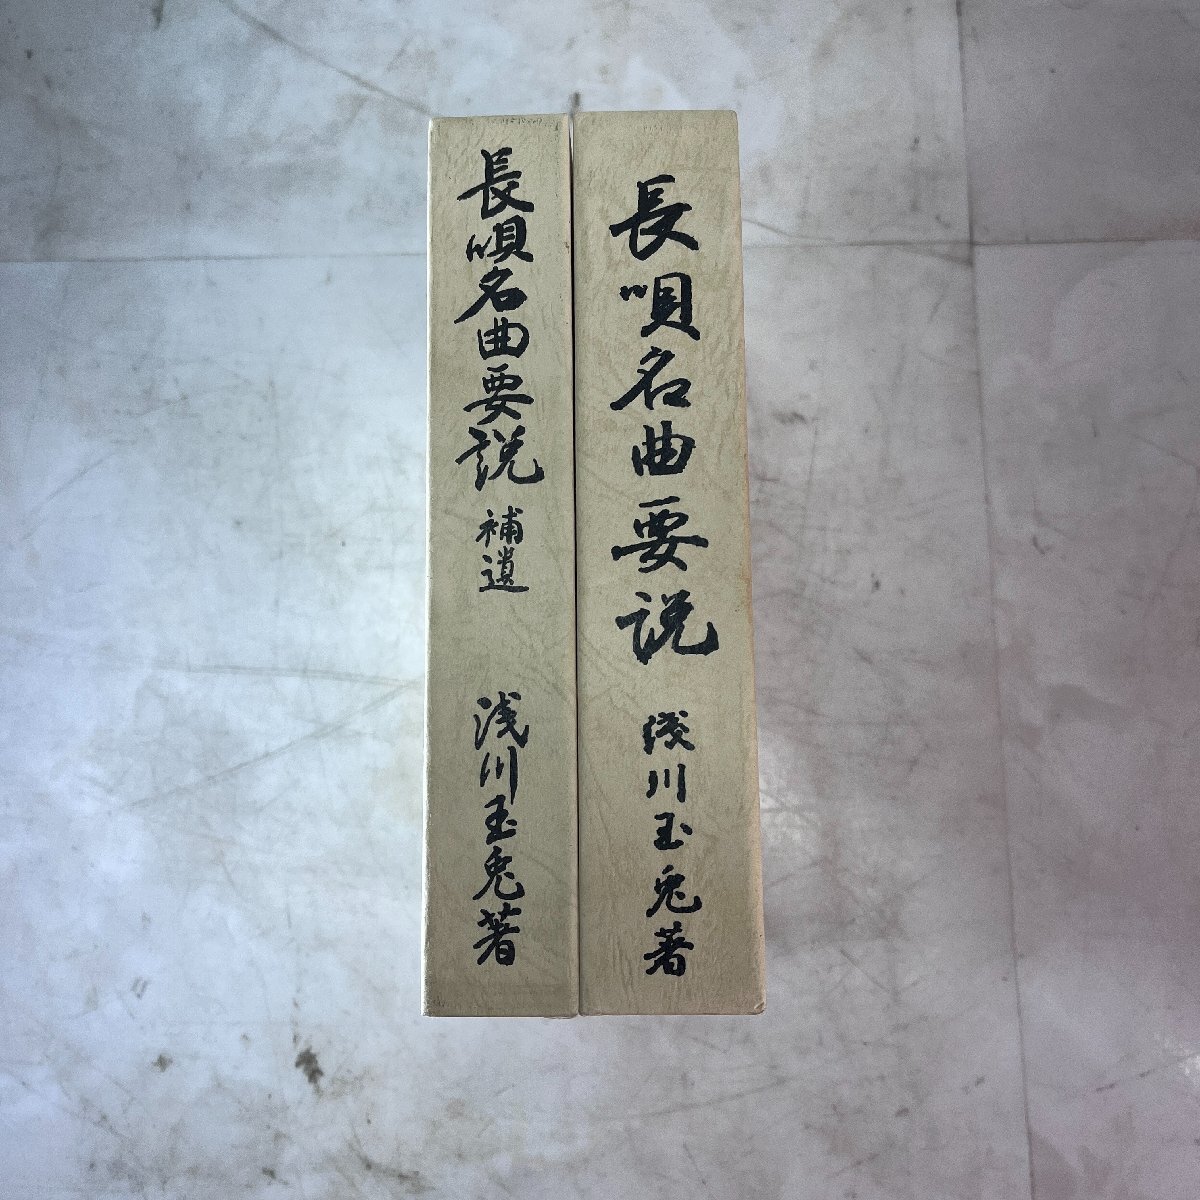 長唄名曲要説 浅川玉兎著
長唄名曲要説 補遺 浅川玉兎著